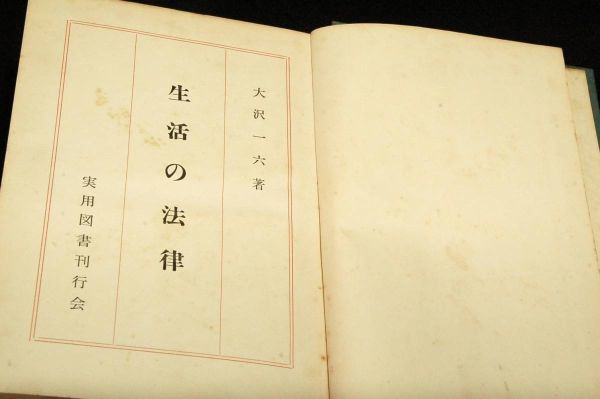 大沢一六著
生活の法律
実用図書刊行会